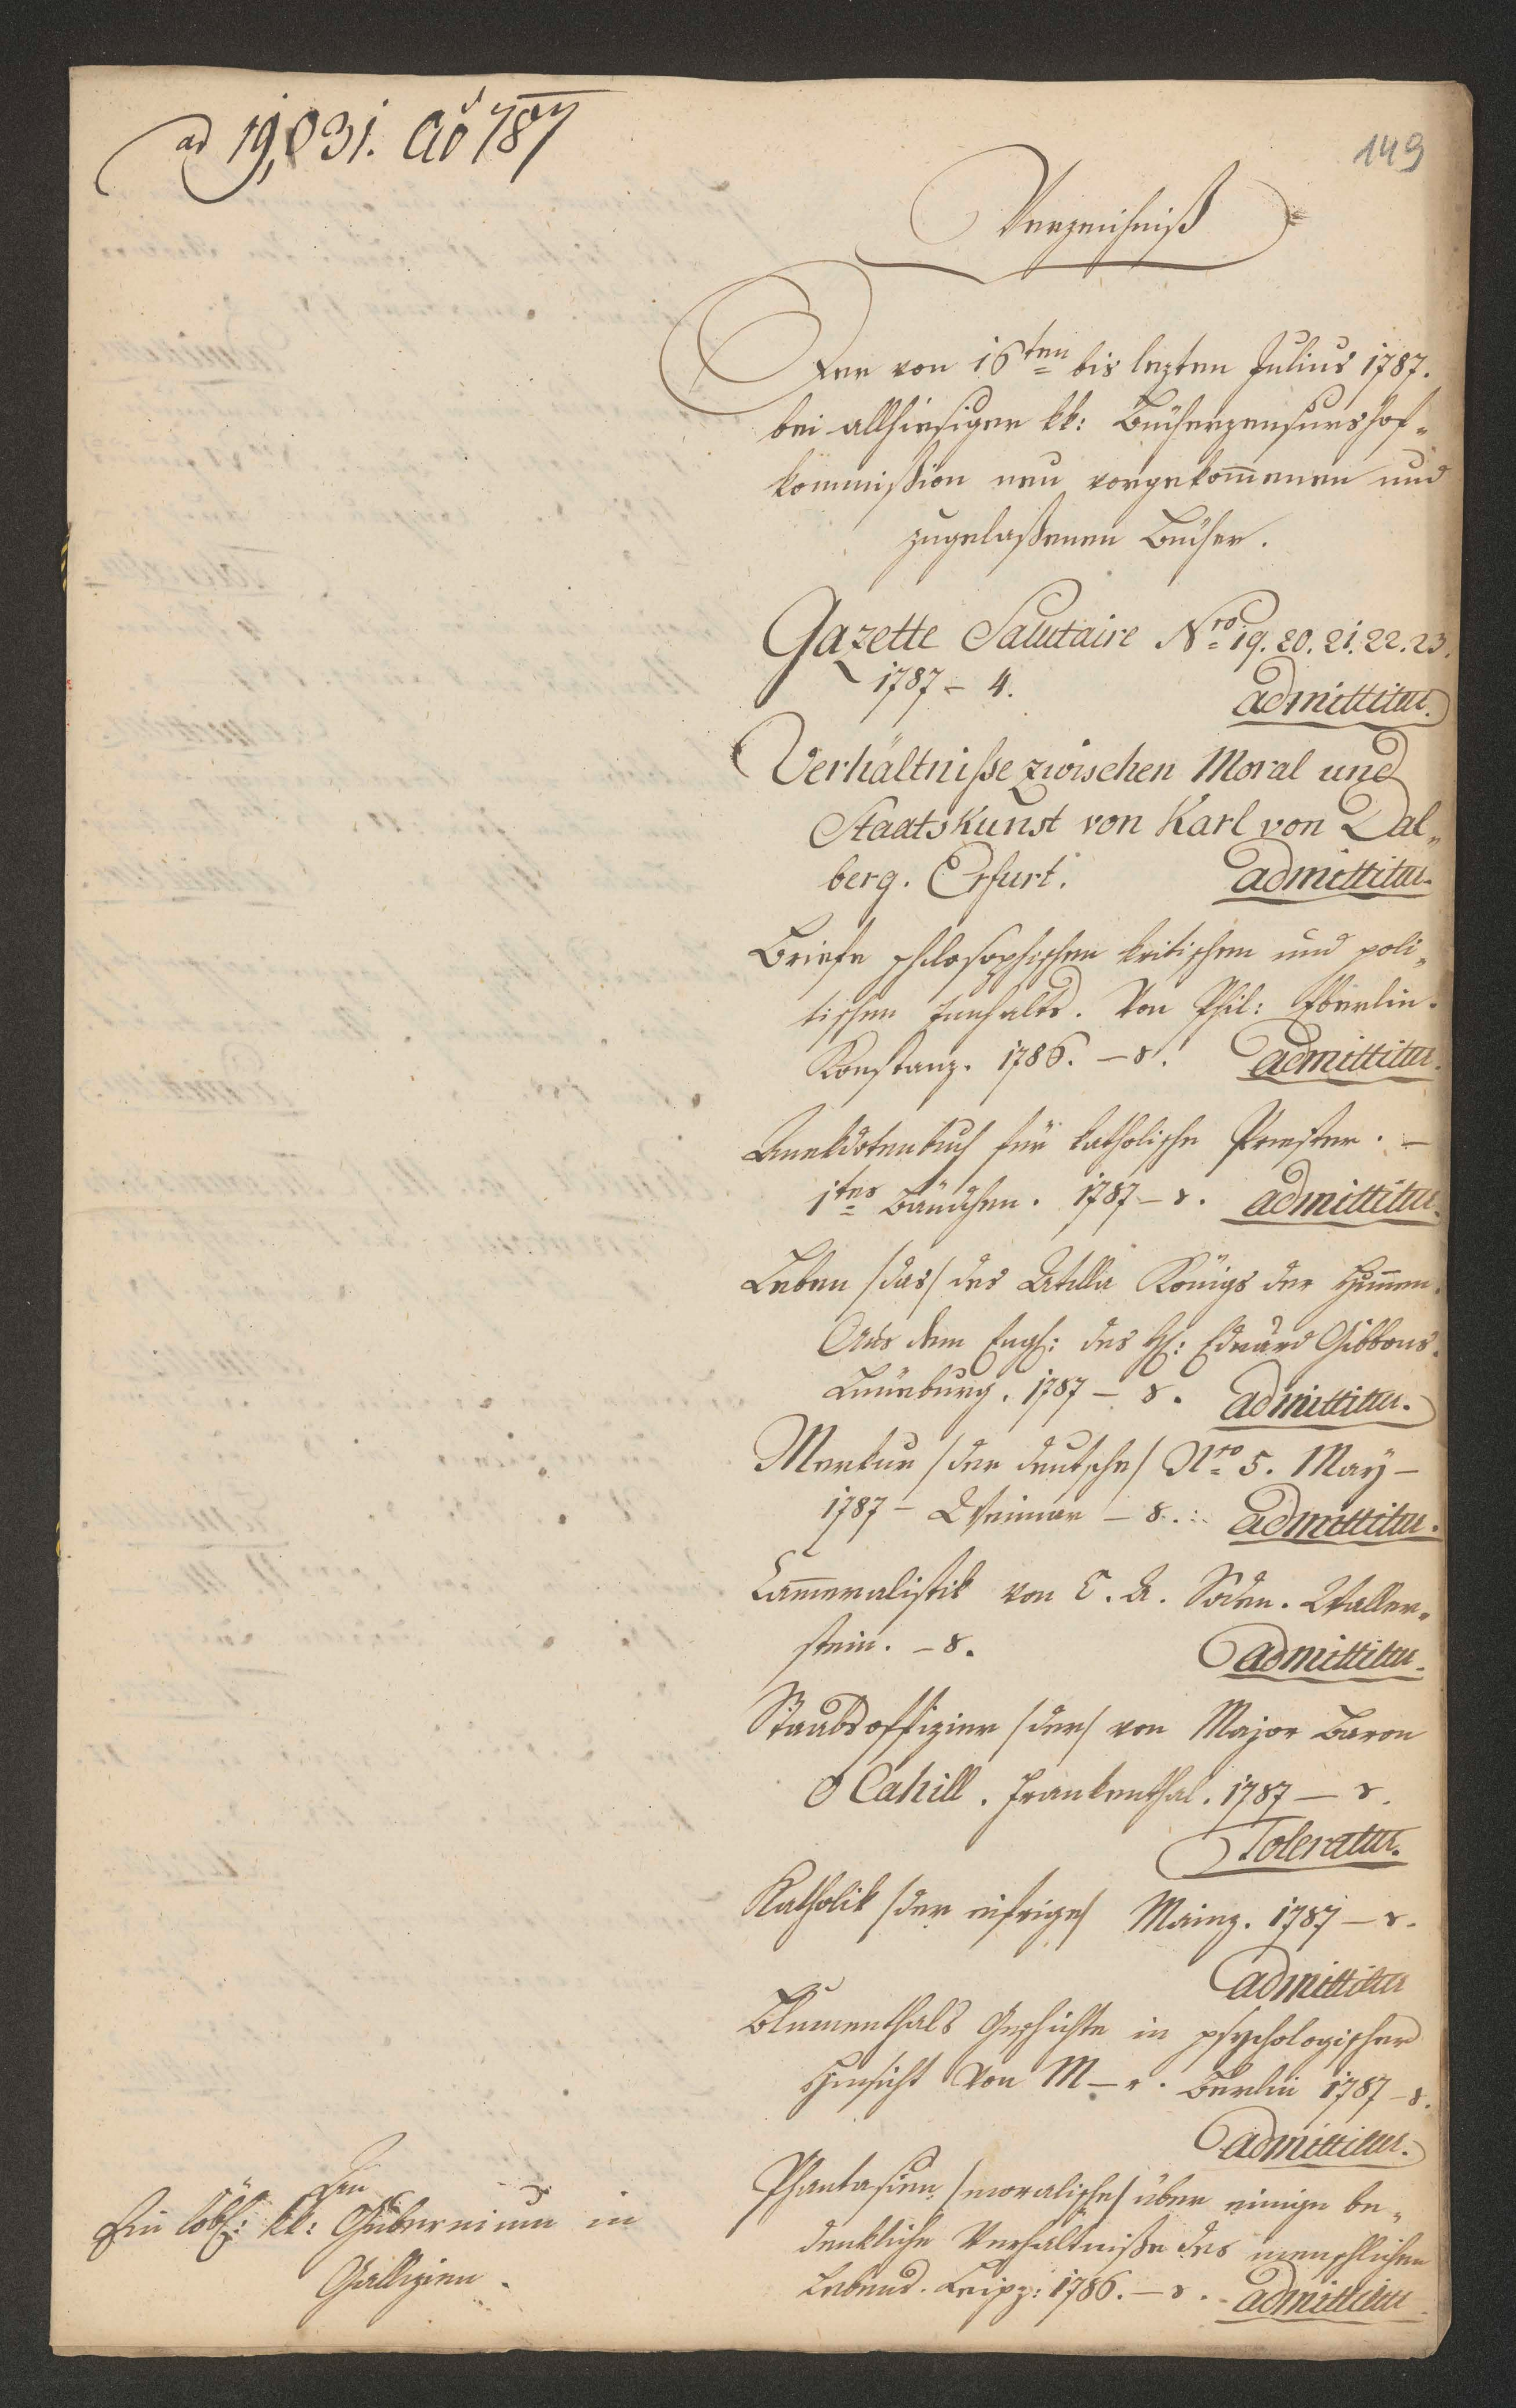 ad 19,031. Ao 787
149
Verzeichniß
Der von 16ten bis lezten Julius 1787.
bei allhiesiger kk: Bücherzensurshof„
kommißion neu vorgekom̄enen und
zugelaßenen Bücher.
Gazette Salutaire Nro 19. 20. 21. 22. 23.
1787 – 4.
admittitur.
Verhältniße zwischen Moral und
Staatskunst von Karl von Dal„
berg. Erfurt. admittitur.
Briefe philosophischen kritischen und poli„
tischen Innhalts. Von Phil: Eberlin.
Konstanz. 1786. – 8. admittitur.
Anekdotenbuch für katholische Priester. –
1tes Bändchen. 1787 – 8. admittitur.
Leben /das/ des Attila Königs der Hun̄en.
Aus dem Engl: des H: Eduard Gibbons.
Lüneburg. 1787 – 8. admittitur.
Merkur /der deutsche/ Nro 5. Maÿ –
1787 – Weimar – 8. admittitur.
Cam̄eralistik von C. A. Soden. Waller„
stein. – 8. admittitur.
Staabsoffizier /der/ von Major Baron
O Cahill. Frankenthal. 1787 – 8.
Toleratur.
Katholik /der eifrige/ Mainz. 1787 – 8.
admittitur
Blumenthals Geschichte in psychologischer
Hinsicht von M – r. Berlin 1787 – 8.
admittitur.
Phantasien /moralische/ über einige be„
denkliche Verhältniße des menschlichen
Lebens. Leipz: 1786. – 8. admittitur
Ein löbl: kk: Gubernium in
Gallizien.